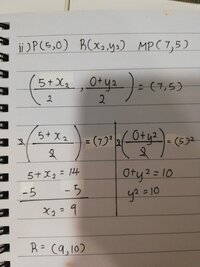 ii) P(5,0) R(x₂,y₂) MP(7,5)
(5+x₂/2 , 0+y2/2) = (7,5)
2(5+x₂/2) = (7)² 2(0+y2/2) = (5)²
5+x₂ = 14 0+y2 = 10
-5 -5 y2 = 10
x₂ = 9
R = (9,10)